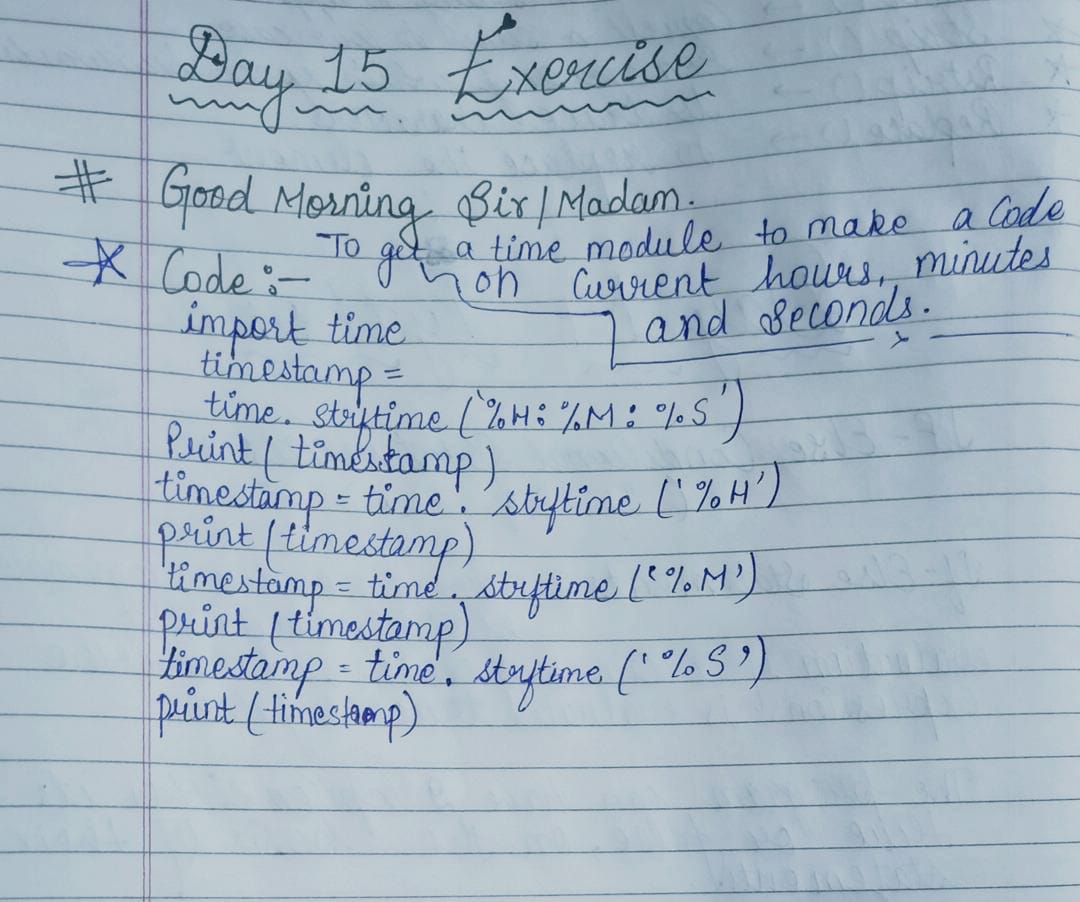 Day 15 Exercise
# Good Morning Sir/Madam.
To get a time module to make a Code
on Current hours, minutes
and Seconds.
Code :-
import time
timestamp =
time. strftime ('%H: %M: %S')
Print (timestamp)
timestamp = time. strftime ('%H')
print (timestamp)
timestamp = time. strftime ('%M')
print (timestamp)
timestamp = time. strftime ('%S')
print (timestamp)